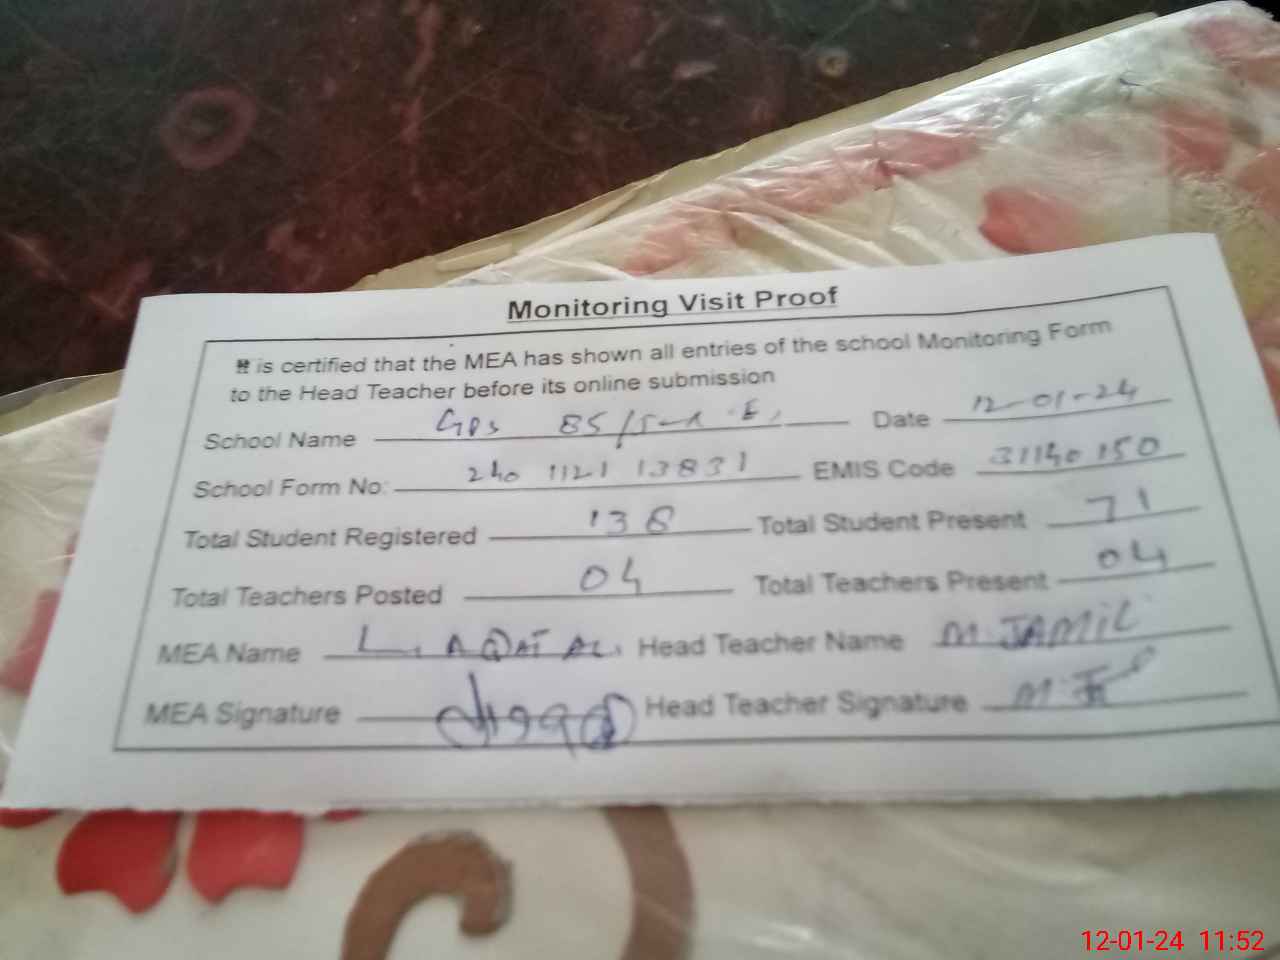 Monitoring Visit Proof
It is certified that the MEA has shown all entries of the school Monitoring Form
to the Head Teacher before its online submission
School Name GPS 85/5-R E. Date 12-01-24
School Form No: 240 1121 13831 EMIS Code 31140150
Total Student Registered 138 Total Student Present 71
Total Teachers Posted 04 Total Teachers Present 04
MEA Name LIAQAT ALI Head Teacher Name M. JAMIL
MEA Signature Head Teacher Signature
12-01-24 11:52